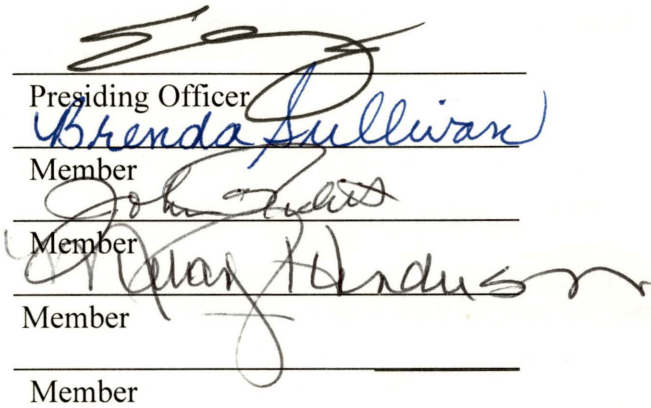 Presiding Officer
Brenda Sullivan
Member
John
Member
Henderson
Member
Member